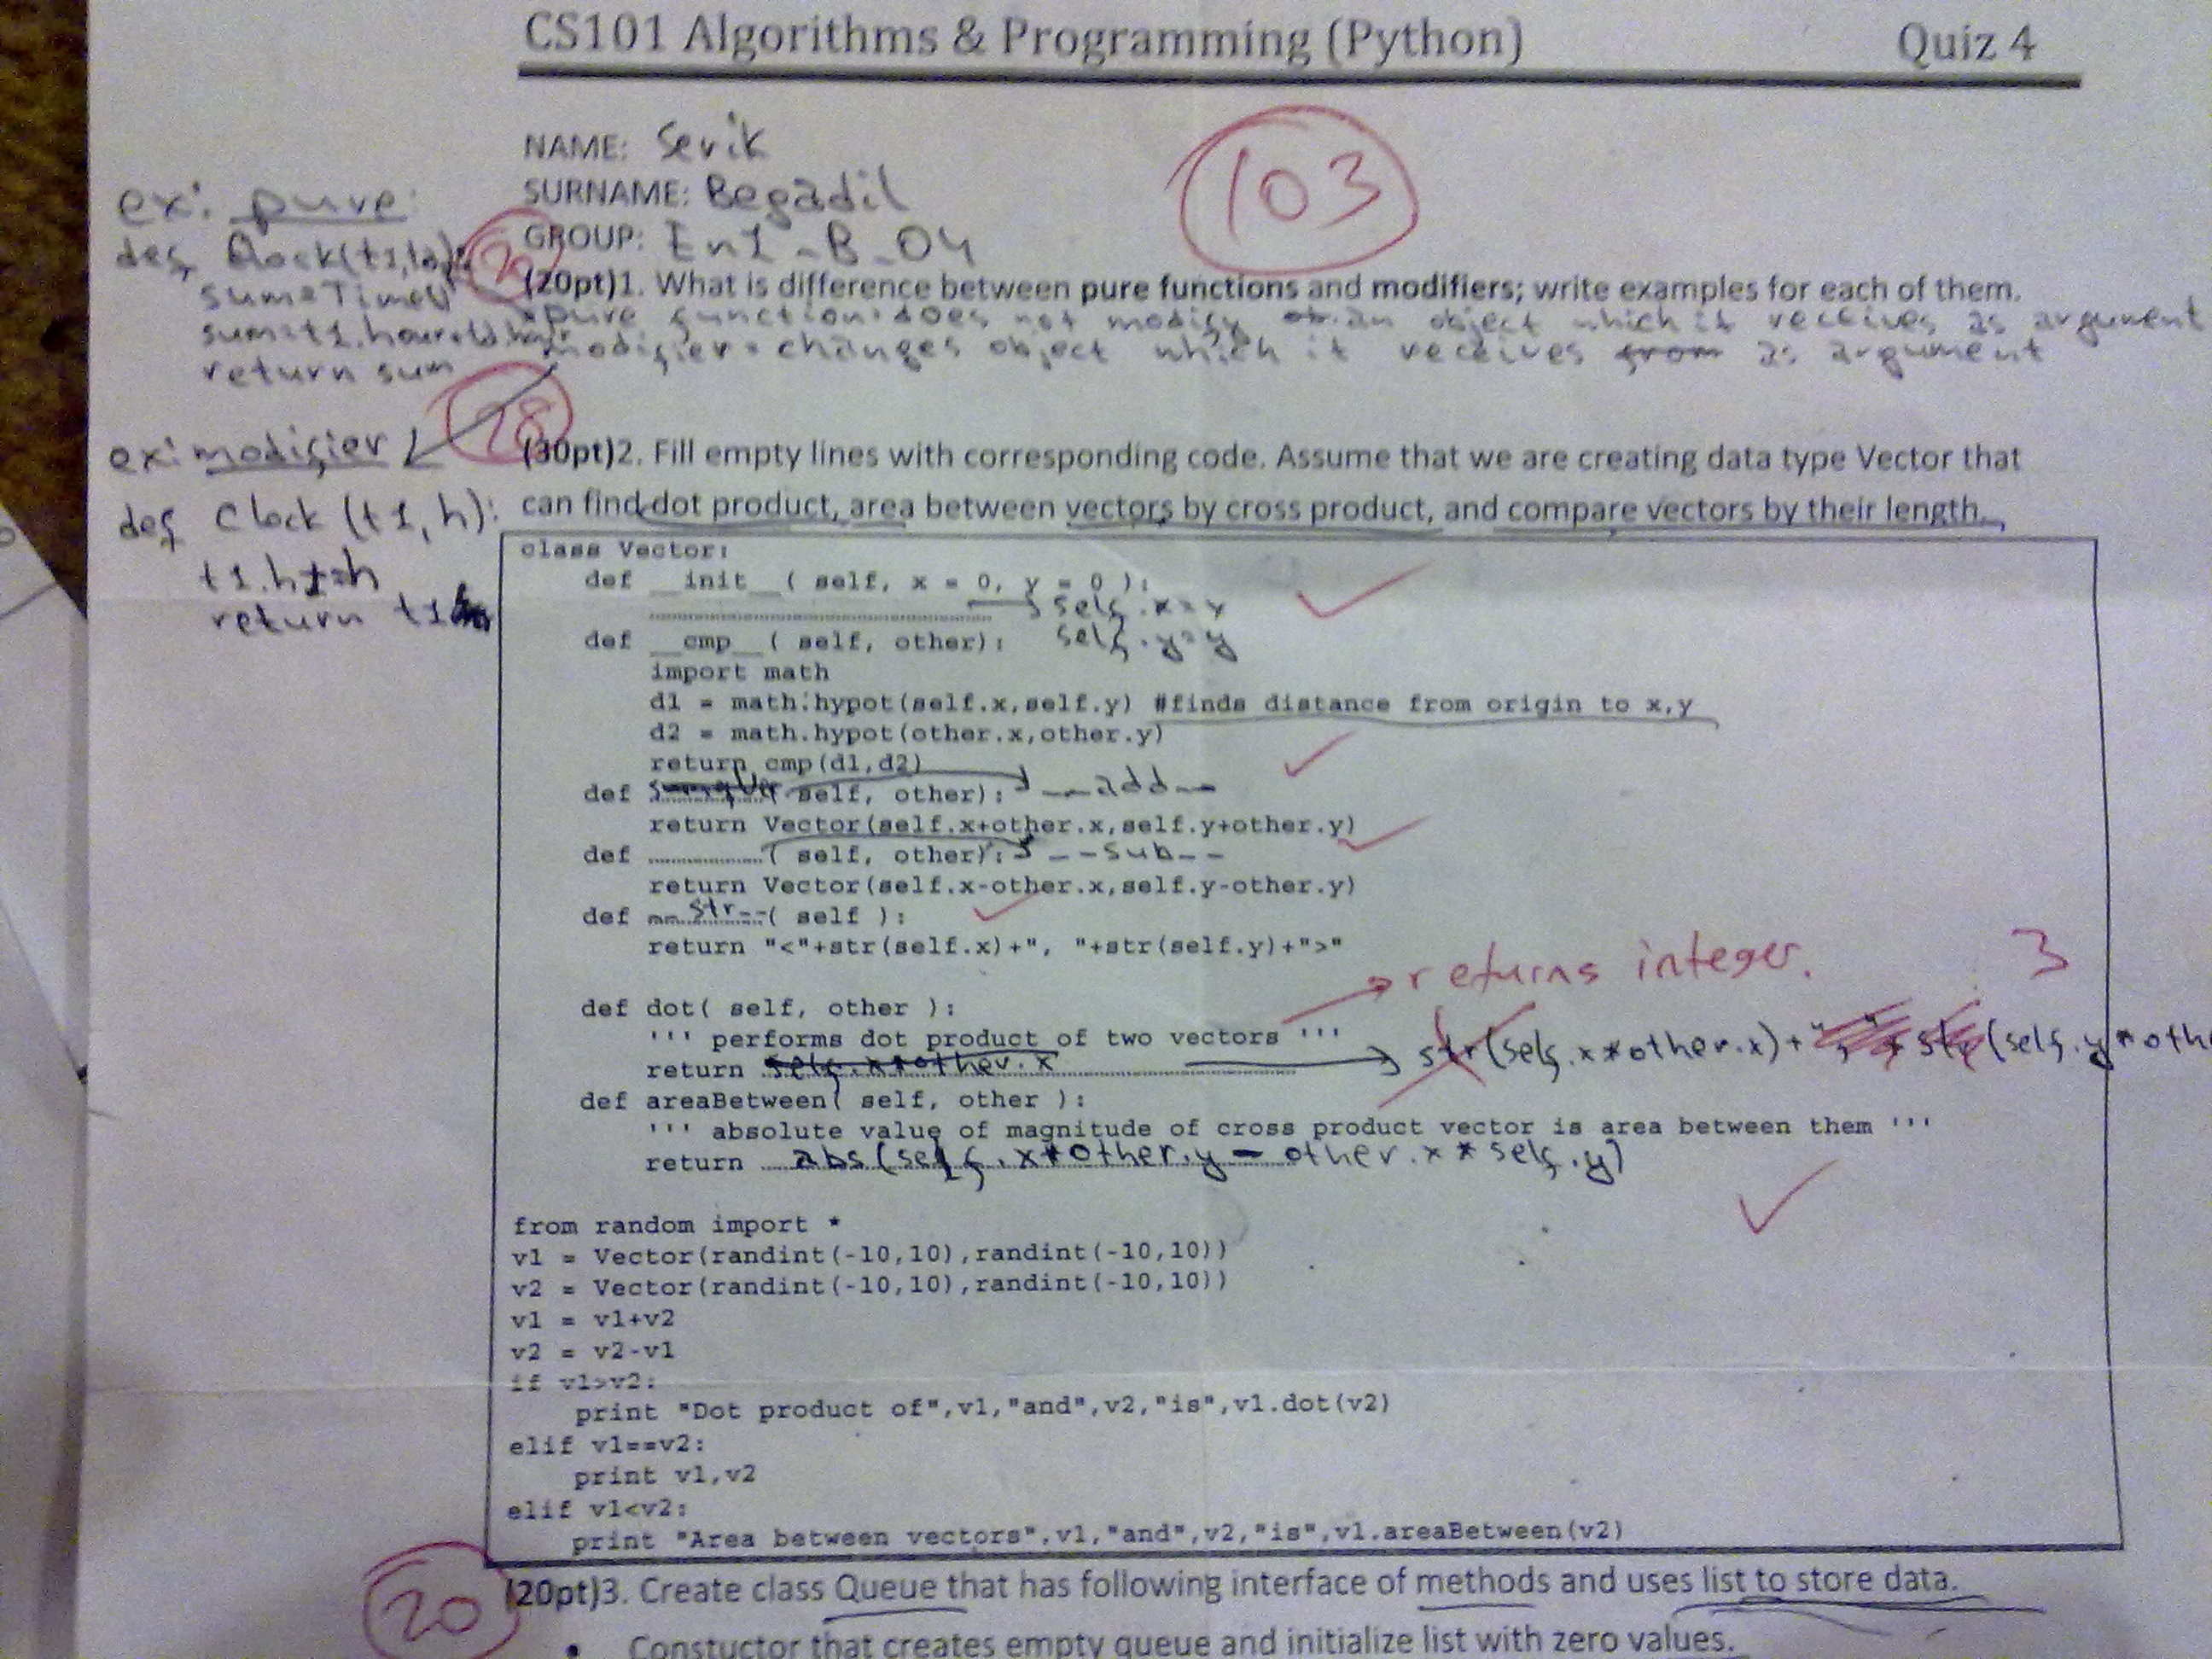 CS101 Algorithms & Programming (Python) Quiz 4
NAME: Serik
103
SURNAME: Begadil
GROUP: En1_B_04
ex: pure:
def Clock(t1,
sum=Time()
return sum
20
(20pt)1. What is difference between pure functions and modifiers; write examples for each of them.
pure function: does not modify an object which it receives as argument
modifier = changes object which it receives from as argument
28
ex: modifier
def Clock (t1, h):
t1.h+=h
return t1
(30pt)2. Fill empty lines with corresponding code. Assume that we are creating data type Vector that
can find dot product, area between vectors by cross product, and compare vectors by their length.
class Vector:
def __init__( self, x = 0, y = 0 ):
self.x=x
def __cmp__( self, other): self.y=y
import math
d1 = math.hypot(self.x,self.y) #finds distance from origin to x,y
d2 = math.hypot(other.x,other.y)
return cmp(d1,d2)
def ( self, other): __add__
return Vector(self.x+other.x,self.y+other.y)
def ..............( self, other): __sub__
return Vector(self.x-other.x,self.y-other.y)
def __str__( self ):
return "<"+str(self.x)+", "+str(self.y)+">"
returns integer. 3
def dot( self, other ):
''' performs dot product of two vectors '''
return self.x*other.x str(self.x*other.x)+ str(self.y*oth
def areaBetween( self, other ):
''' absolute value of magnitude of cross product vector is area between them '''
return abs(self.x*other.y - other.x * self.y)
from random import *
v1 = Vector(randint(-10,10),randint(-10,10))
v2 = Vector(randint(-10,10),randint(-10,10))
v1 = v1+v2
v2 = v2-v1
if v1>v2:
print "Dot product of",v1,"and",v2,"is",v1.dot(v2)
elif v1==v2:
print v1,v2
elif v1<v2:
print "Area between vectors",v1,"and",v2,"is",v1.areaBetween(v2)
20
(20pt)3. Create class Queue that has following interface of methods and uses list to store data.
• Constuctor that creates empty queue and initialize list with zero values.